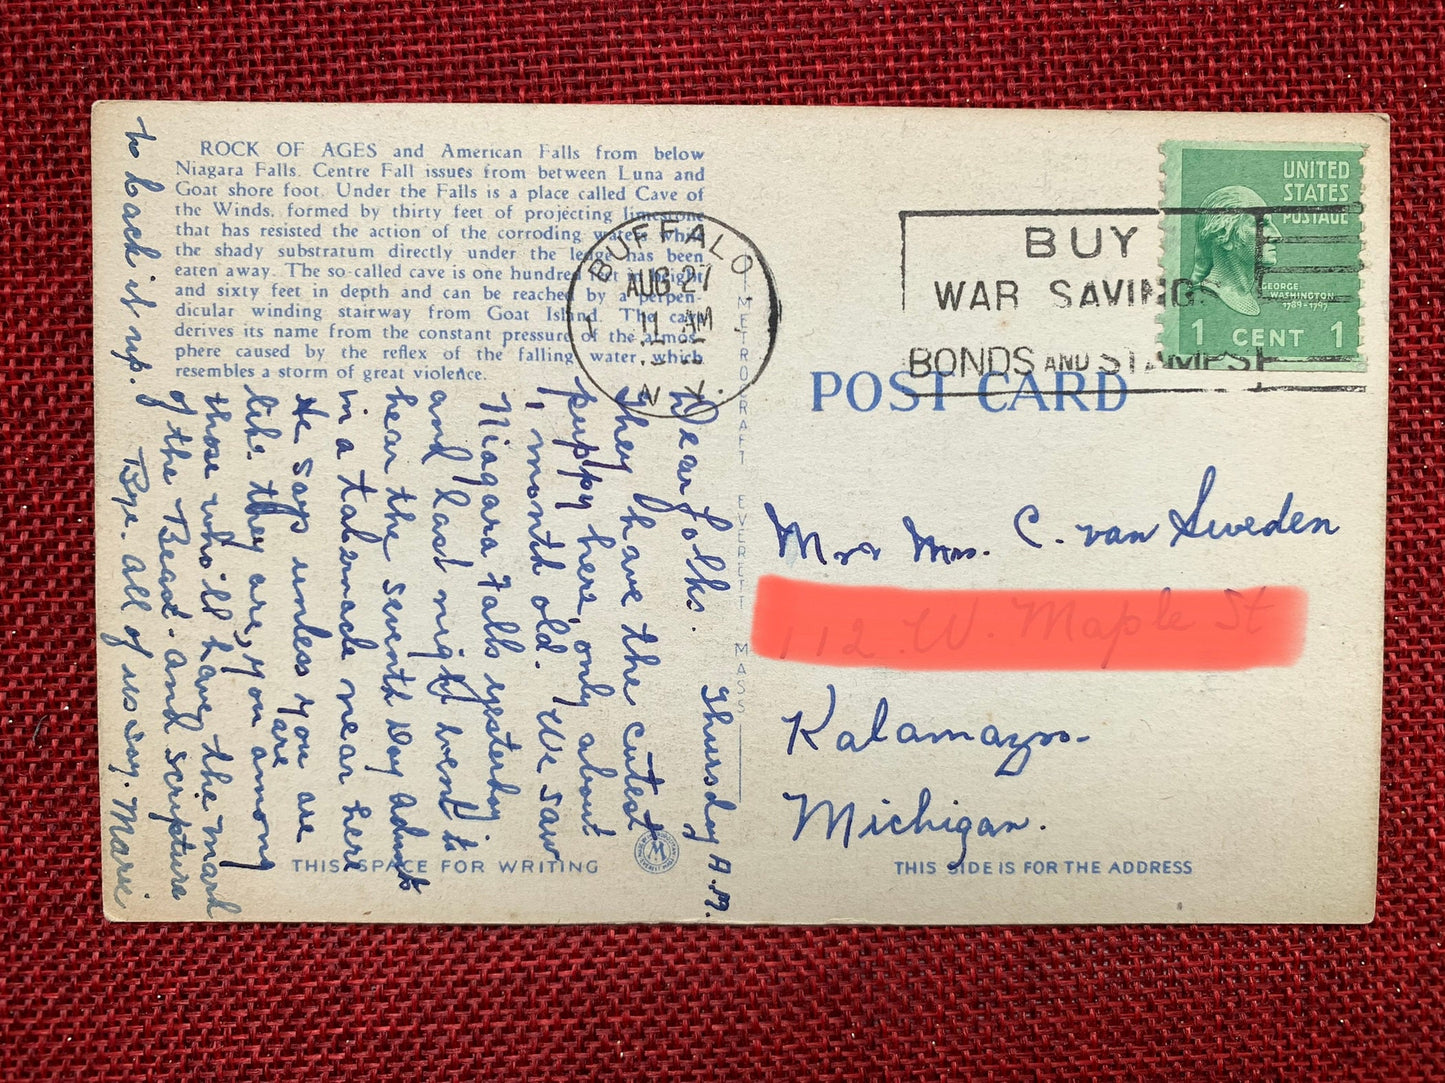 ROCK OF AGES and American Falls from below
Niagara Falls. Centre Fall issues from between Luna and
Goat shore foot. Under the Falls is a place called Cave of
the Winds, formed by thirty feet of projecting limestone
that has resisted the action of the corroding waters which
the shady substratum directly under the ledge has been
eaten away. The so-called cave is one hundred feet in height
and sixty feet in depth and can be reached by a perpen-
dicular winding stairway from Goat Island. The cave
derives its name from the constant pressure of the atmos-
phere caused by the reflex of the falling water, which
resembles a storm of great violence.
BUFFALO
AUG 27
11 AM
N.Y.
BUY
WAR SAVINGS
BONDS AND STAMPS
UNITED
STATES
POSTAGE
GEORGE
WASHINGTON
1789-1797
1 CENT 1
POST CARD
METROCRAFT EVERETT MASS
Dear folks. Thursdy A.M.
They have the cutest
puppy here, only about
1 month old. We saw
Niagara Falls yesterday
and last night went to
hear the Seventh Day Advent
in a tabernacle near here
He says unless you are
like they are, you are among
those who'll have the mark
of the Beast - and scripture
to back it up. Bye. All of us say. Marie
Mr & Mrs. C. van Sweden
112 W. Maple St
Kalamazoo-
Michigan.
THIS SPACE FOR WRITING
M
THIS SIDE IS FOR THE ADDRESS